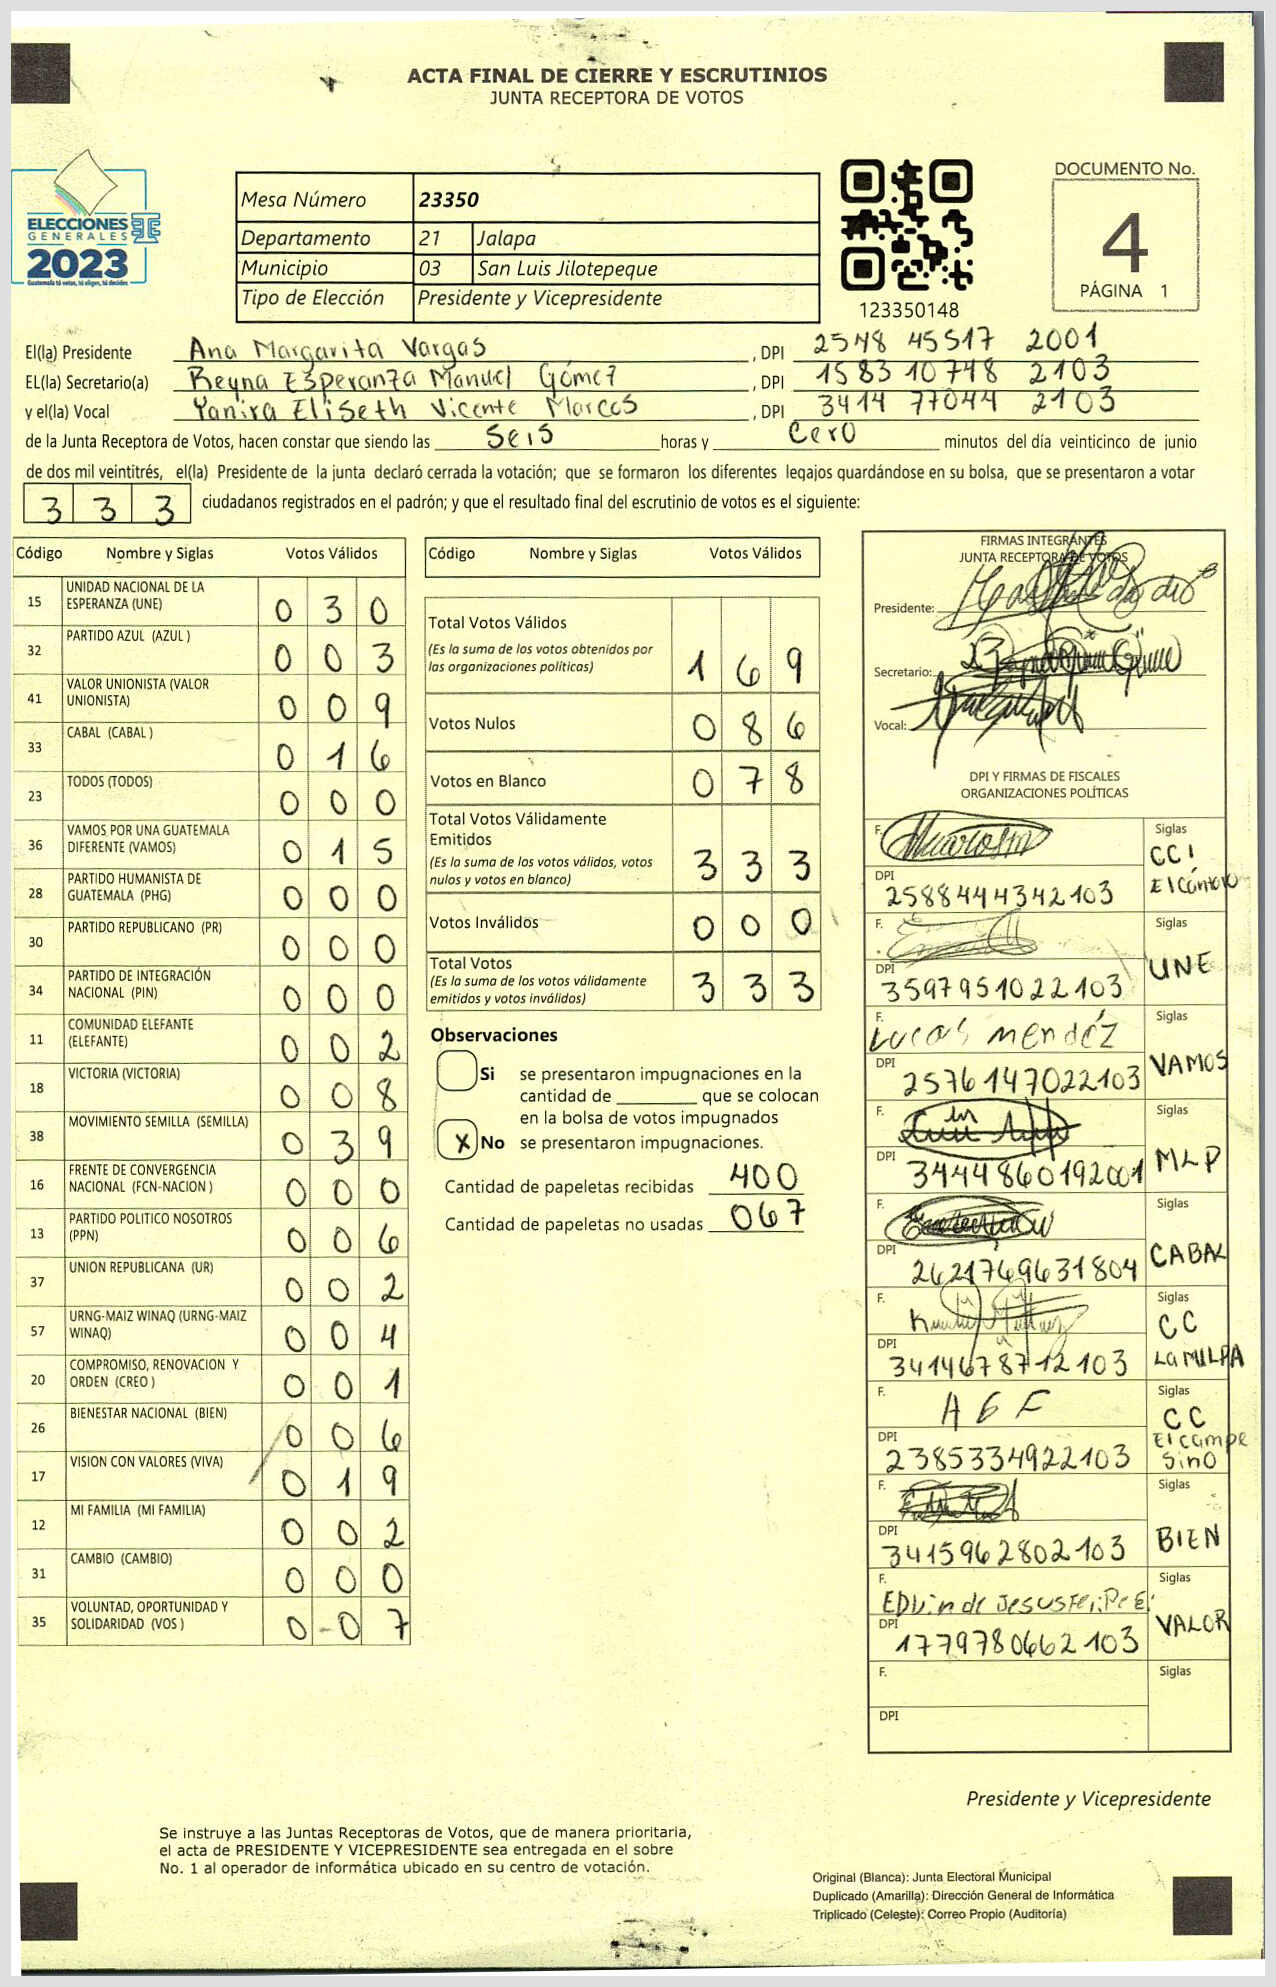 ACTA FINAL DE CIERRE Y ESCRUTINIOS
JUNTA RECEPTORA DE VOTOS
ELECCIONES
GENERALES
2023
Guatemala tú votas, tú eliges, tú decides
Mesa Número 23350
Departamento 21 Jalapa
Municipio 03 San Luis Jilotepeque
Tipo de Elección Presidente y Vicepresidente
123350148
DOCUMENTO No.
4
PÁGINA 1
El(la) Presidente Ana Margarita Vargas, DPI 2548 45517 2001
EL(la) Secretario(a) Reyna Esperanza Manuel Gómez, DPI 1583 10748 2103
y el(la) Vocal Yanira Eliseth Vicente Marcos, DPI 3414 77044 2103
de la Junta Receptora de Votos, hacen constar que siendo las Seis horas y Cero minutos del día veinticinco de junio
de dos mil veintitrés, el(la) Presidente de la junta declaró cerrada la votación; que se formaron los diferentes legajos quardándose en su bolsa, que se presentaron a votar
3 3 3 ciudadanos registrados en el padrón; y que el resultado final del escrutinio de votos es el siguiente:
Código Nombre y Siglas Votos Válidos
15 UNIDAD NACIONAL DE LA ESPERANZA (UNE) 0 3 0
32 PARTIDO AZUL (AZUL ) 0 0 3
41 VALOR UNIONISTA (VALOR UNIONISTA) 0 0 9
33 CABAL (CABAL ) 0 1 6
23 TODOS (TODOS) 0 0 0
36 VAMOS POR UNA GUATEMALA DIFERENTE (VAMOS) 0 1 5
28 PARTIDO HUMANISTA DE GUATEMALA (PHG) 0 0 0
30 PARTIDO REPUBLICANO (PR) 0 0 0
34 PARTIDO DE INTEGRACIÓN NACIONAL (PIN) 0 0 0
11 COMUNIDAD ELEFANTE (ELEFANTE) 0 0 2
18 VICTORIA (VICTORIA) 0 0 8
38 MOVIMIENTO SEMILLA (SEMILLA) 0 3 9
16 FRENTE DE CONVERGENCIA NACIONAL (FCN-NACION ) 0 0 0
13 PARTIDO POLITICO NOSOTROS (PPN) 0 0 6
37 UNION REPUBLICANA (UR) 0 0 2
57 URNG-MAIZ WINAQ (URNG-MAIZ WINAQ) 0 0 4
20 COMPROMISO, RENOVACION Y ORDEN (CREO ) 0 0 1
26 BIENESTAR NACIONAL (BIEN) 0 0 6
17 VISION CON VALORES (VIVA) 0 1 9
12 MI FAMILIA (MI FAMILIA) 0 0 2
31 CAMBIO (CAMBIO) 0 0 0
35 VOLUNTAD, OPORTUNIDAD Y SOLIDARIDAD (VOS ) 0 - 0 7
Código Nombre y Siglas Votos Válidos
Total Votos Válidos 1 6 9
(Es la suma de los votos obtenidos por
las organizaciones políticas)
Votos Nulos 0 8 6
Votos en Blanco 0 7 8
Total Votos Válidamente
Emitidos 3 3 3
(Es la suma de los votos válidos, votos
nulos y votos en blanco)
Votos Inválidos 0 0 0
Total Votos 3 3 3
(Es la suma de los votos válidamente
emitidos y votos inválidos)
Observaciones
Si se presentaron impugnaciones en la
cantidad de ________ que se colocan
en la bolsa de votos impugnados
X No se presentaron impugnaciones.
Cantidad de papeletas recibidas 400
Cantidad de papeletas no usadas 067
FIRMAS INTEGRANTES
JUNTA RECEPTORA DE VOTOS
Presidente:
Secretario:
Vocal:
DPI Y FIRMAS DE FISCALES
ORGANIZACIONES POLÍTICAS
F. Siglas CC1
DPI 2588444342103
F. Siglas UNE
DPI 3597951022103
F. Lucas Mendéz Siglas VAMOS
DPI 2576147022103
F. Siglas MLP
DPI 3444860192001
F. Siglas CABAL
DPI 2621769631804
F. Siglas CC LA MILPA
DPI 3414678712103
F. A G F Siglas CC El campesino
DPI 2385334922103
F. Siglas BIEN
DPI 3415962802103
F. EDvin de Jesus Felipe E. Siglas VALOR
DPI 1779780662103
F. Siglas
DPI
Presidente y Vicepresidente
Se instruye a las Juntas Receptoras de Votos, que de manera prioritaria,
el acta de PRESIDENTE Y VICEPRESIDENTE sea entregada en el sobre
No. 1 al operador de informática ubicado en su centro de votación.
Original (Blanca): Junta Electoral Municipal
Duplicado (Amarilla): Dirección General de Informática
Triplicado (Celeste): Correo Propio (Auditoría)